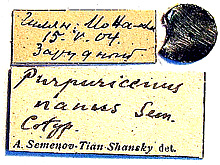 Гилян: 
15. V. 04
Зарудный
Purpuricenus
nanus Sem.
Cotyp.
A. Semenov-Tian-Shansky det.